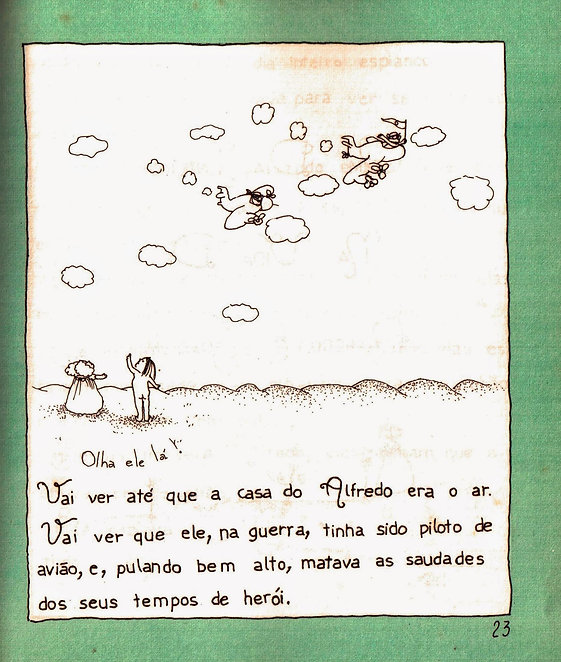 Olha ele lá!
Vai ver até que a casa do Alfredo era o ar.
Vai ver que ele, na guerra, tinha sido piloto de
avião, e, pulando bem alto, matava as saudades
dos seus tempos de herói.
23